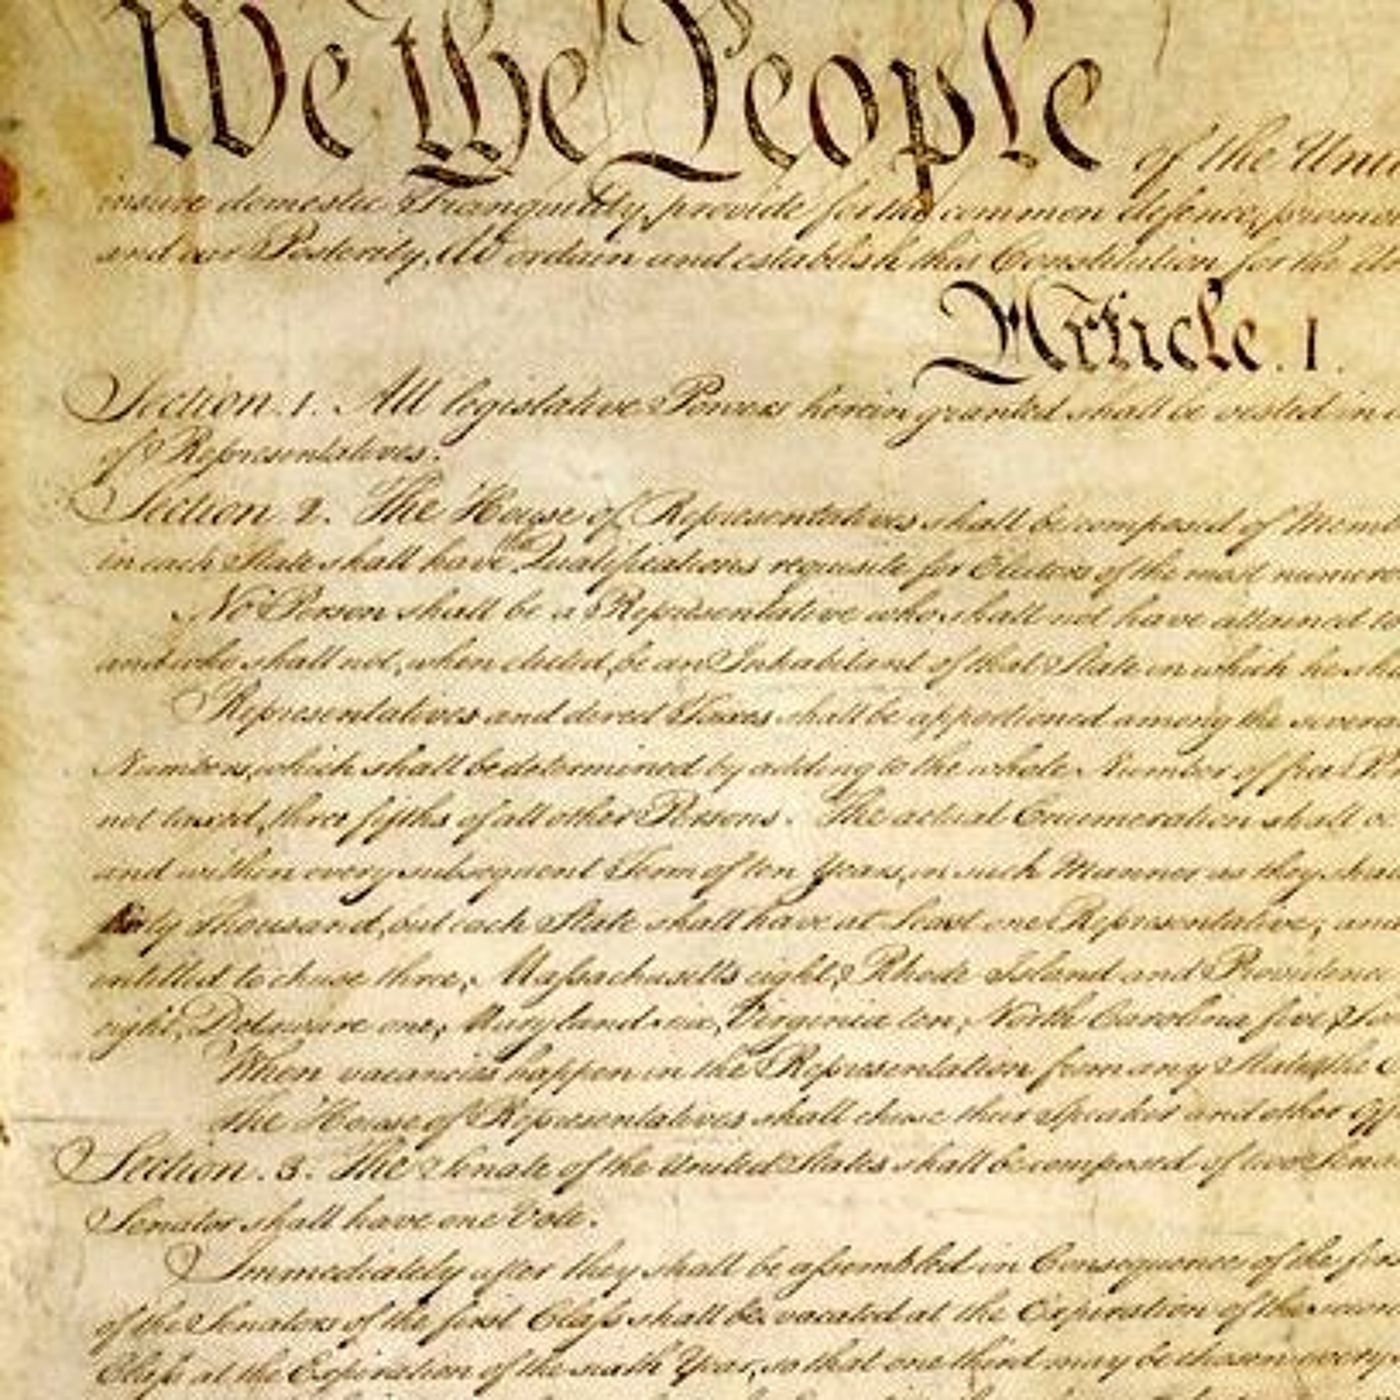 We the People of the Uni
insure domestic Tranquility, provide for the common defence, promo
and our Posterity, do ordain and establish this Constitution for the Un
Article. I.
Section. 1. All legislative Powers herein granted shall be vested in a
of Representatives.
Section. 2. The House of Representatives shall be composed of Memb
in each State shall have the Qualifications requisite for Electors of the most numero
No Person shall be a Representative who shall not have attained to
and who shall not, when elected, be an Inhabitant of that State in which he sha
Representatives and direct Taxes shall be apportioned among the severa
Numbers, which shall be determined by adding to the whole Number of free P
not taxed, three fifths of all other Persons. The actual Enumeration shall be
and within every subsequent Term of ten Years, in such Manner as they shal
thirty Thousand, but each State shall have at Least one Representative; and
entitled to chuse three, Massachusetts eight, Rhode Island and Providence
eight, Delaware one, Maryland six, Virginia ten, North Carolina five, Sou
When vacancies happen in the Representation from any State, the E
The House of Representatives shall chuse their Speaker and other Off
Section. 3. The Senate of the United States shall be composed of two Sena
Senator shall have one Vote.
Immediately after they shall be assembled in Consequence of the fir
of the Senators of the first Class shall be vacated at the Expiration of the secon
Class at the Expiration of the sixth Year, so that one third may be chosen every